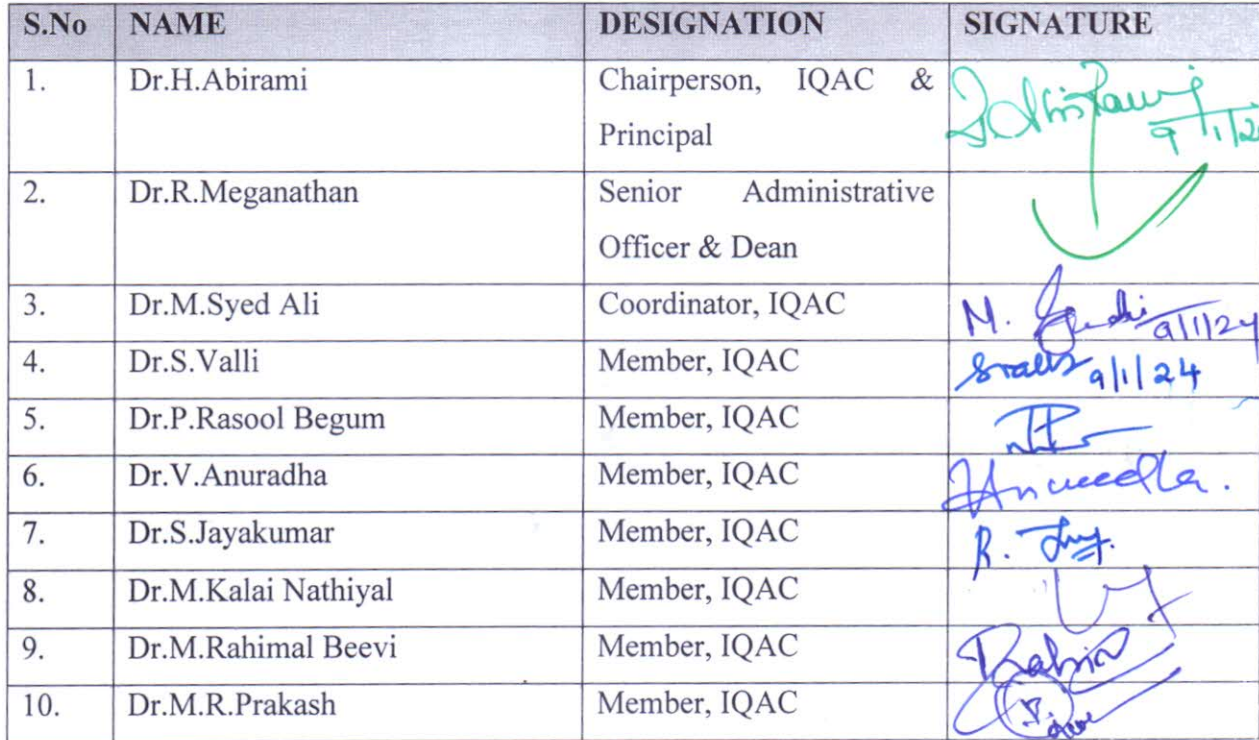 S.No NAME DESIGNATION SIGNATURE
1. Dr.H.Abirami Chairperson, IQAC &
Principal
9/1/2
2. Dr.R.Meganathan Senior Administrative
Officer & Dean
3. Dr.M.Syed Ali Coordinator, IQAC M. 9/1/24
4. Dr.S.Valli Member, IQAC 9/1/24
5. Dr.P.Rasool Begum Member, IQAC
6. Dr.V.Anuradha Member, IQAC
7. Dr.S.Jayakumar Member, IQAC
8. Dr.M.Kalai Nathiyal Member, IQAC
9. Dr.M.Rahimal Beevi Member, IQAC
10. Dr.M.R.Prakash Member, IQAC